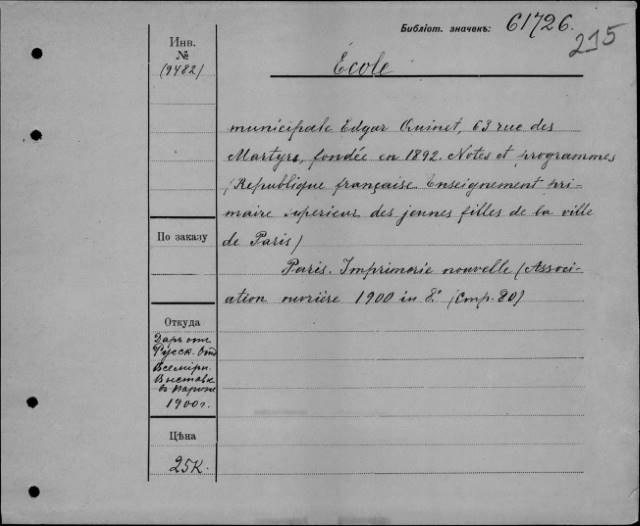 Библіот. значекъ: 61726.
215
Инв.
№
(9482)
École
municipale Edgar Quinet, 63 rue des
Martyrs, fondée en 1892. Notes et programmes
(Republique française. Enseignement pri-
maire superieur des jeunes filles de la ville
de Paris)
Paris. Imprimerie nouvelle (Associ-
ation ouvrière 1900 in 8° (стр. 80)
По заказу
Откуда
Даръ отъ
Русск. Отд
Всемірн.
Выставк
въ Париже
1900 г.
Цѣна
25к.